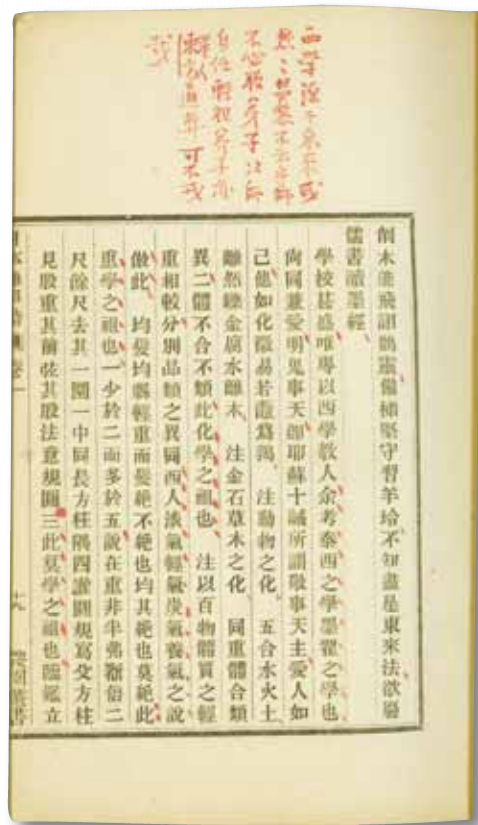 西學源于
不必
自任輕視弟子亦
可不戒
或
削木能飛詡鵲靈備梯堅守習羊坽不知盡是東來法欲廢
儒書讀墨經
學校甚盛唯專以西學教人余考泰西之學墨翟之學也
尚同兼愛明鬼事天即耶蘇十誡所謂敬事天主愛人如
己他如化徵易若鼃爲鶉　注動物之化　五合水火土
離然鑠金腐水離木　注金石草木之化　同重體合類
異二體不合不類此化學之祖也　注以百物體質之輕
重相較分別品類之異同西人淡氣輕氣炭氣養氣之說
倣此　均髮均縣輕重而髮絕不絕也均其絕也莫絕此
重學之祖也一少於二而多於五說在重非半弗倍二
尺餘尺去其一圜一中同長方柱隅四讙圜規寫攴方柱
見股重其前弦其股法意規圓三此算學之祖也臨鑑立
日本雜事詩 卷一